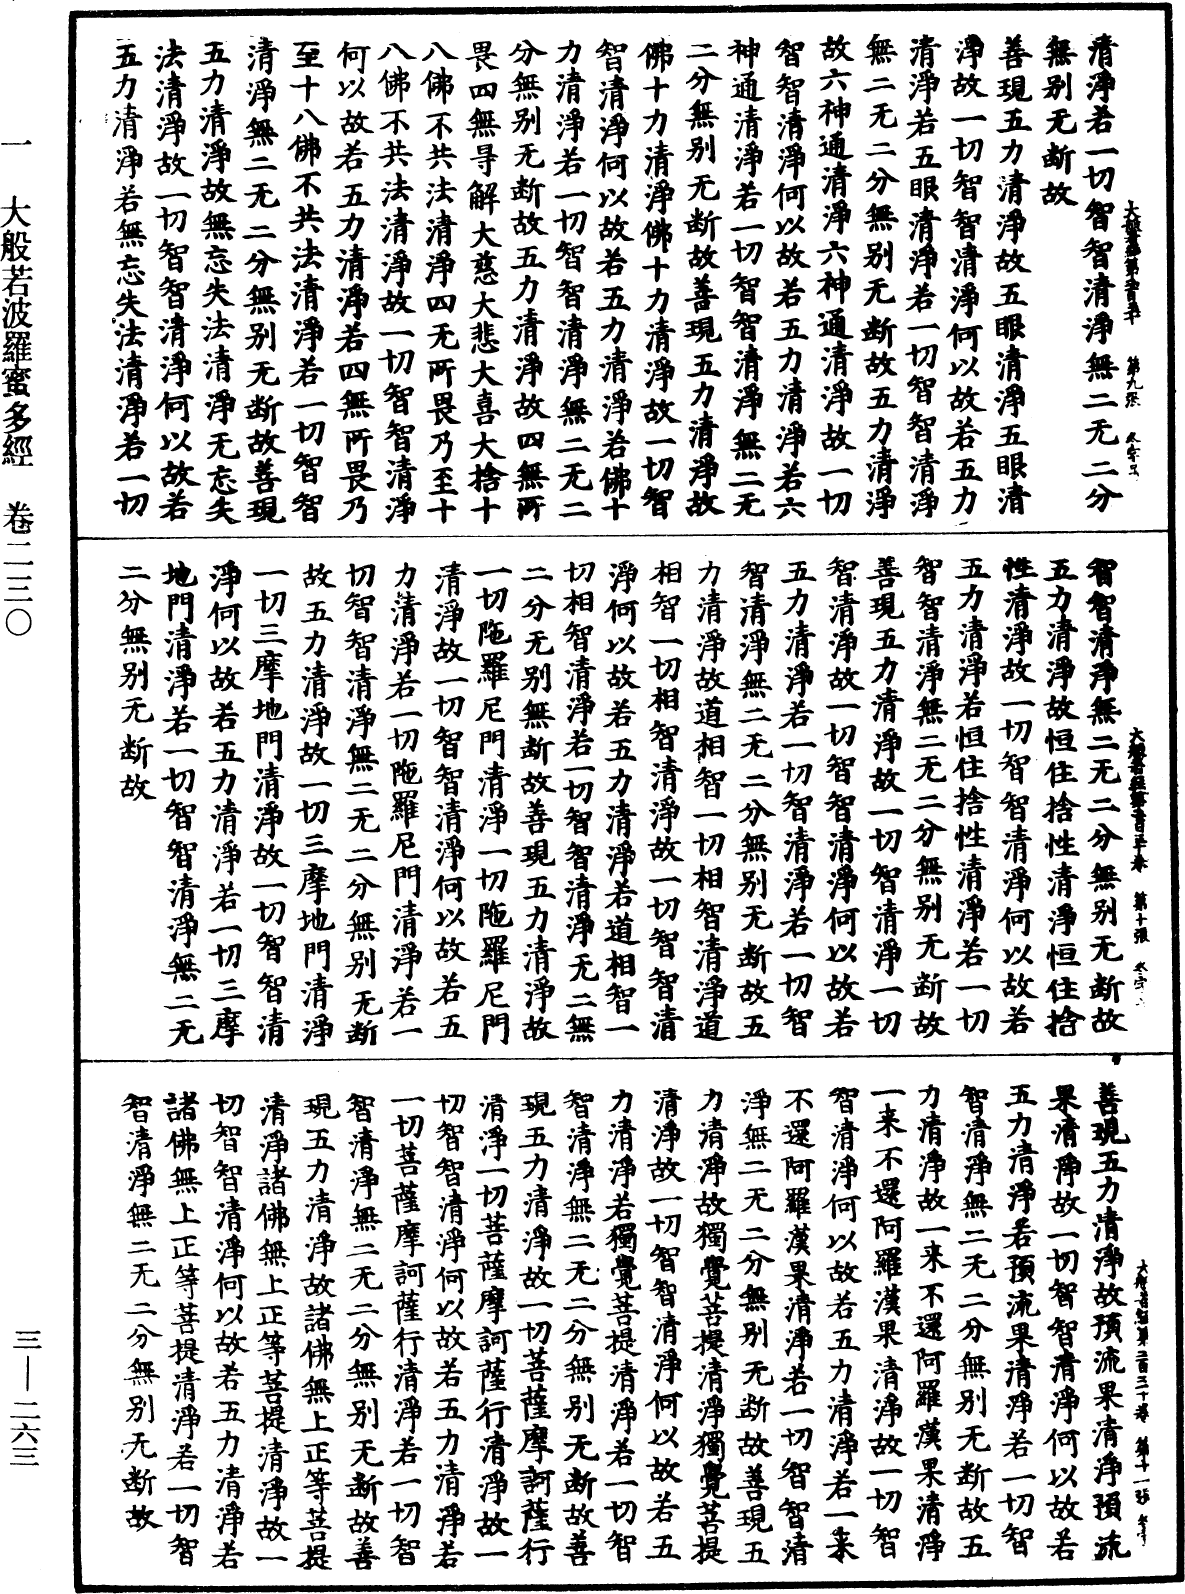 清淨若一切智智清淨無二无二分
無别无断故
善現五力清淨故五眼清淨五眼清
淨故一切智智清淨何以故若五力
清淨若五眼清淨若一切智智清淨
無二无二分無别无断故五力清淨
故六神通清淨六神通清淨故一切
智智清淨何以故若五力清淨若六
神通清淨若一切智智清淨無二无
二分無别无断故善現五力清淨故
佛十力清淨佛十力清淨故一切智
智清淨何以故若五力清淨若佛十
力清淨若一切智智清淨無二无二
分無别无断故五力清淨故四無所
畏四無㝵解大慈大悲大喜大捨十
八佛不共法清淨四无所畏乃至十
八佛不共法清淨故一切智智清淨
何以故若五力清淨若四無所畏乃
至十八佛不共法清淨若一切智智
清淨無二无二分無别无断故善現
五力清淨故無忘失法清淨无忘失
法清淨故一切智智清淨何以故若
五力清淨若無忘失法清淨若一切
智智清淨無二无二分無别无断故
五力清淨故恒住捨性清淨恒住捨
性清淨故一切智智清淨何以故若
五力清淨若恒住捨性清淨若一切
智智清淨無二无二分無别无断故
善現五力清淨故一切智清淨一切
智清淨故一切智智清淨何以故若
五力清淨若一切智清淨若一切智
智清淨無二无二分無别无断故五
力清淨故道相智一切相智清淨道
相智一切相智清淨故一切智智清
淨何以故若五力清淨若道相智一
切相智清淨若一切智智清淨无二無
二分无别無断故善現五力清淨故
一切陁羅尼門清淨一切陁羅尼門
清淨故一切智智清淨何以故若五
力清淨若一切陁羅尼門清淨若一
切智智清淨無二无二分無别无断
故五力清淨故一切三摩地門清淨
一切三摩地門清淨故一切智智清
淨何以故若五力清淨若一切三摩
地門清淨若一切智智清淨無二无
二分無别无断故
善現五力清淨故預流果清淨預流
果清淨故一切智智清淨何以故若
五力清淨若預流果清淨若一切智
智清淨無二无二分無别无断故五
力清淨故一来不還阿羅漢果清淨
一来不還阿羅漢果清淨故一切智
智清淨何以故若五力清淨若一来
不還阿羅漢果清淨若一切智智清
淨無二无二分無别无断故善現五
力清淨故獨覺菩提清淨獨覺菩提
清淨故一切智智清淨何以故若五
力清淨若獨覺菩提清淨若一切智
智清淨無二无二分無别无断故善
現五力清淨故一切菩薩摩訶薩行
清淨一切菩薩摩訶薩行清淨故一
切智智清淨何以故若五力清淨若
一切菩薩摩訶薩行清淨若一切智
智清淨無二无二分無别无断故善
現五力清淨故諸佛無上正等菩提
清淨諸佛無上正等菩提清淨故一
切智智清淨何以故若五力清淨若
諸佛無上正等菩提清淨若一切智
智清淨無二无二分無别无断故
大般若經第二百三十卷 第十張
大般若經第二百三十卷 第十一張
一 大般若波羅蜜多經 卷二三〇
三—二六三